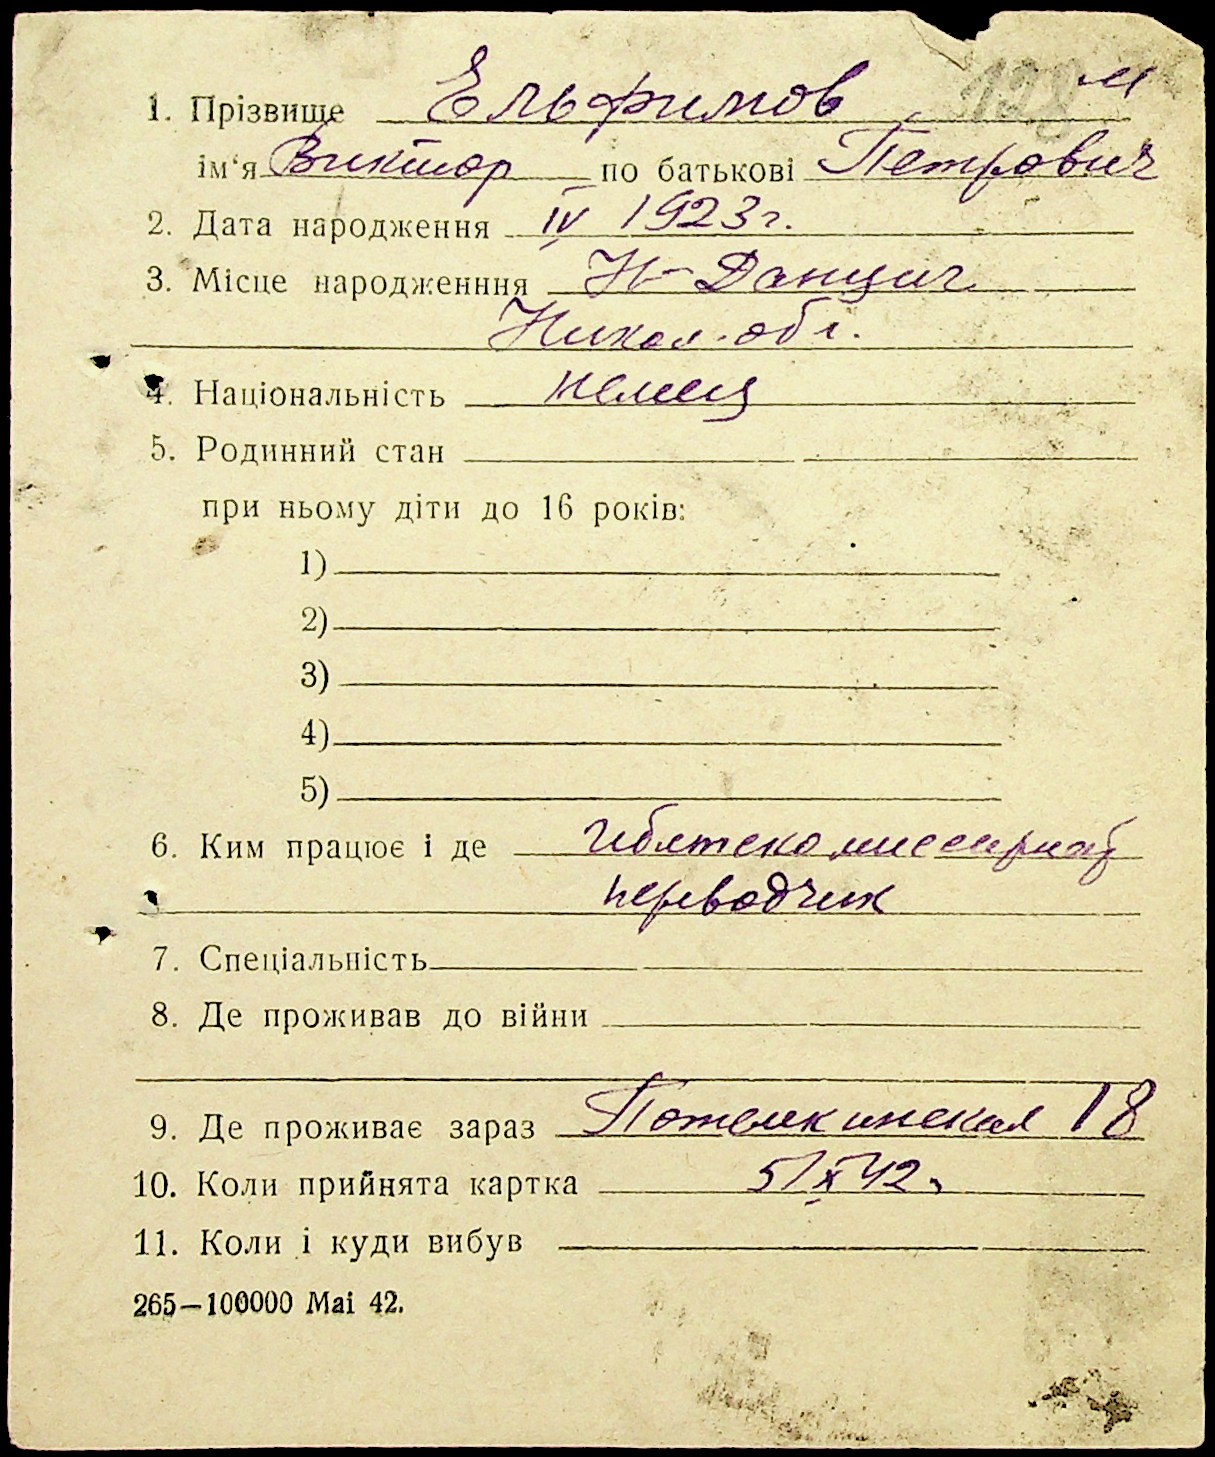 128 м
1. Прізвище Ельфимов
ім‘я Виктор по батькові Петрович
2. Дата народження IV 1923 г.
3. Місце народженння Н-Данциг
Никол. обл.
4. Національність немец
5. Родинний стан
при ньому діти до 16 років:
1)
2)
3)
4)
5)
6. Ким працює і де
переводчик
7. Спеціальність
8. Де проживав до війни
9. Де проживає зараз Потемкинская 18
10. Коли прийнята картка 5/X 42
11. Коли і куди вибув
265—100000 Mai 42.